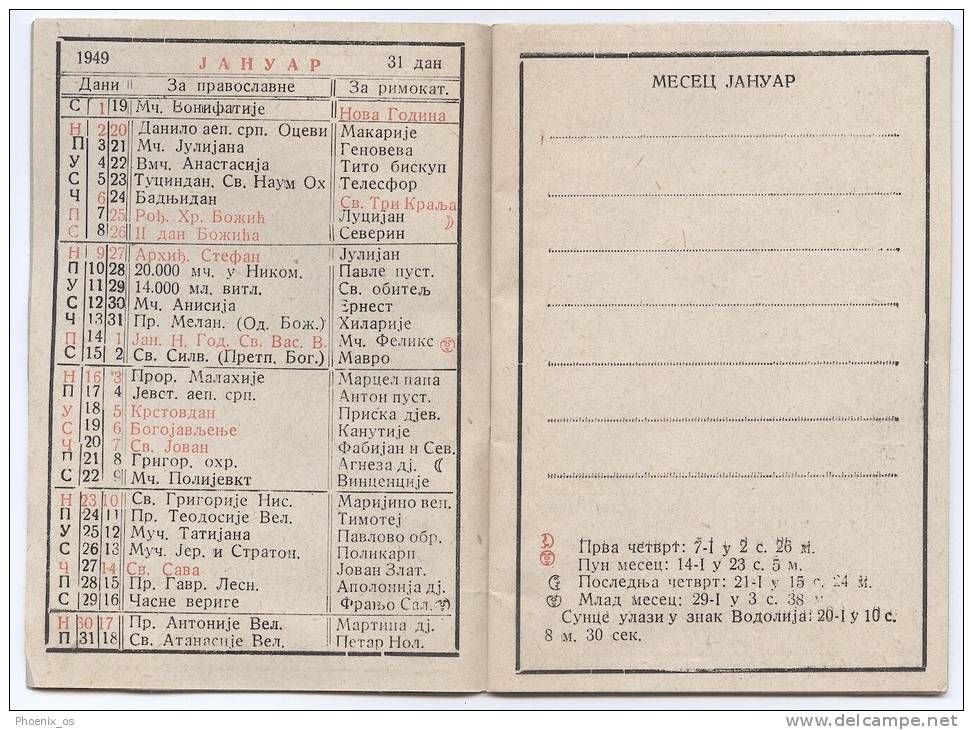 1949 ЈАНУАР 31 дан
Дани За православне За римокат.
С 1 19 Мч. Вонифатије Нова Година
Н 2 20 Данило аеп. срп. Оцеви Макарије
П 3 21 Мч. Јулијана Геновева
У 4 22 Вмч. Анастасија Тито бискуп
С 5 23 Туциндан. Св. Наум Ох Телесфор
Ч 6 24 Бадњидан Св. Три Краља
П 7 25 Рођ. Хр. Божић Луцијан
С 8 26 II дан Божића Северин
Н 9 27 Архиђ. Стефан Јулијан
П 10 28 20.000 мч. у Ником. Павле пуст.
У 11 29 14.000 мл. витл. Св. обитељ
С 12 30 Мч. Анисија Ернест
Ч 13 31 Пр. Мелан. (Од. Бож.) Хиларије
П 14 1 Јан. Н. Год. Св. Вас. В. Мч. Феликс
С 15 2 Св. Силв. (Претп. Бог.) Мавро
Н 16 3 Прор. Малахије Марцел папа
П 17 4 Јевст. аеп. срп. Антон пуст.
У 18 5 Крстовдан Приска дјев.
С 19 6 Богојављење Канутије
Ч 20 7 Св. Јован Фабијан и Сев.
П 21 8 Григор. охр. Агнеза дј.
С 22 9 Мч. Полијевкт Винценције
Н 23 10 Св. Григорије Нис. Маријино вен.
П 24 11 Пр. Теодосије Вел. Тимотеј
У 25 12 Муч. Татијана Павлово обр.
С 26 13 Муч. Јер. и Стратон. Поликарп
Ч 27 14 Св. Сава Јован Злат.
П 28 15 Пр. Гавр. Лесн. Аполонија дј.
С 29 16 Часне вериге Фрањо Сал.
Н 30 17 Пр. Антоније Вел. Мартина дј.
П 31 18 Св. Атанасије Вел. Петар Нол.
МЕСЕЦ ЈАНУАР
Прва четврт: 7-I у 2 с. 26 м.
Пун месец: 14-I у 23 с. 5 м.
Последња четврт: 21-I у 15 с. 24 м.
Млад месец: 29-I у 3 с. 38
Сунце улази у знак Водолија: 20-I у 10 с.
8 м. 30 сек.
Phoenix_os
delcampe.net